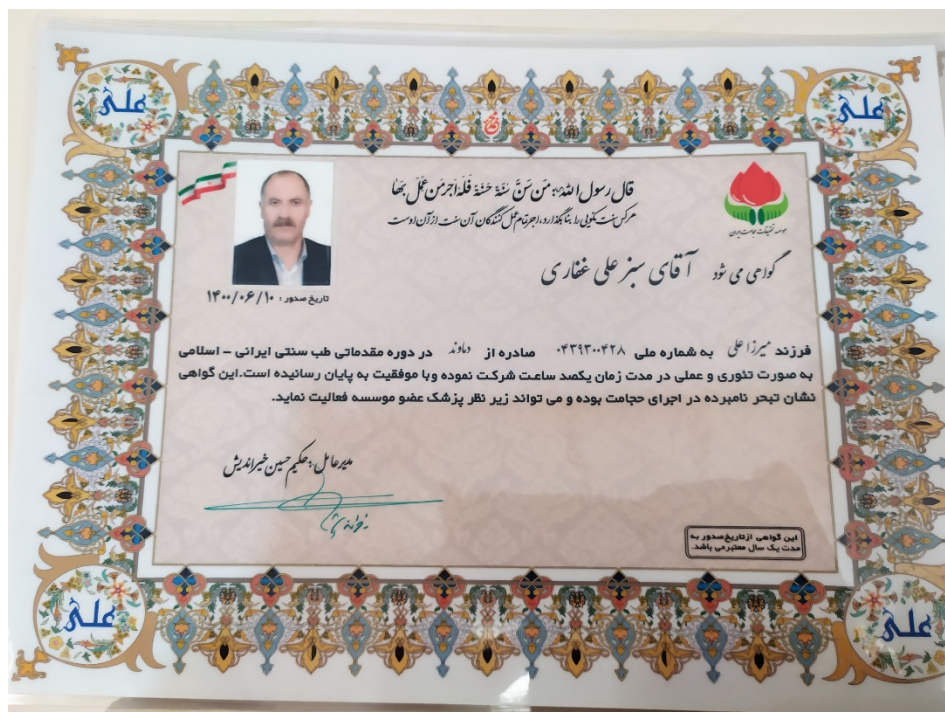 علی
علی
قال رسول الله: مَن سَنَّ سُنَّة حَسَنَة فَلَهُ اَجرُ مَن عَمِلَ بِهَا
هرکس سنت نیکویی را بنا بگذارد، اجر تمام عمل کنندگان آن سنت از آن اوست
موسسه تحقیقات حجامت ایران
گواهی می شود آقای سبز علی غفاری
تاریخ صدور : ۱۴۰۰/۰۶/۱۰
فرزند میرزا علی به شماره ملی ۰۴۳۹۳۰۰۴۲۸ صادره از دماوند در دوره مقدماتی طب سنتی ایرانی – اسلامی
به صورت تئوری و عملی در مدت زمان یکصد ساعت شرکت نموده وبا موفقیت به پایان رسانیده است.این گواهی
نشان تبحر نامبرده در اجرای حجامت بوده و می تواند زیر نظر پزشک عضو موسسه فعالیت نماید.
مدیرعامل : حکیم حسین خیراندیش
این گواهی ازتاریخ صدور به
مدت یک سال معتبرمی باشد.
علی
علی